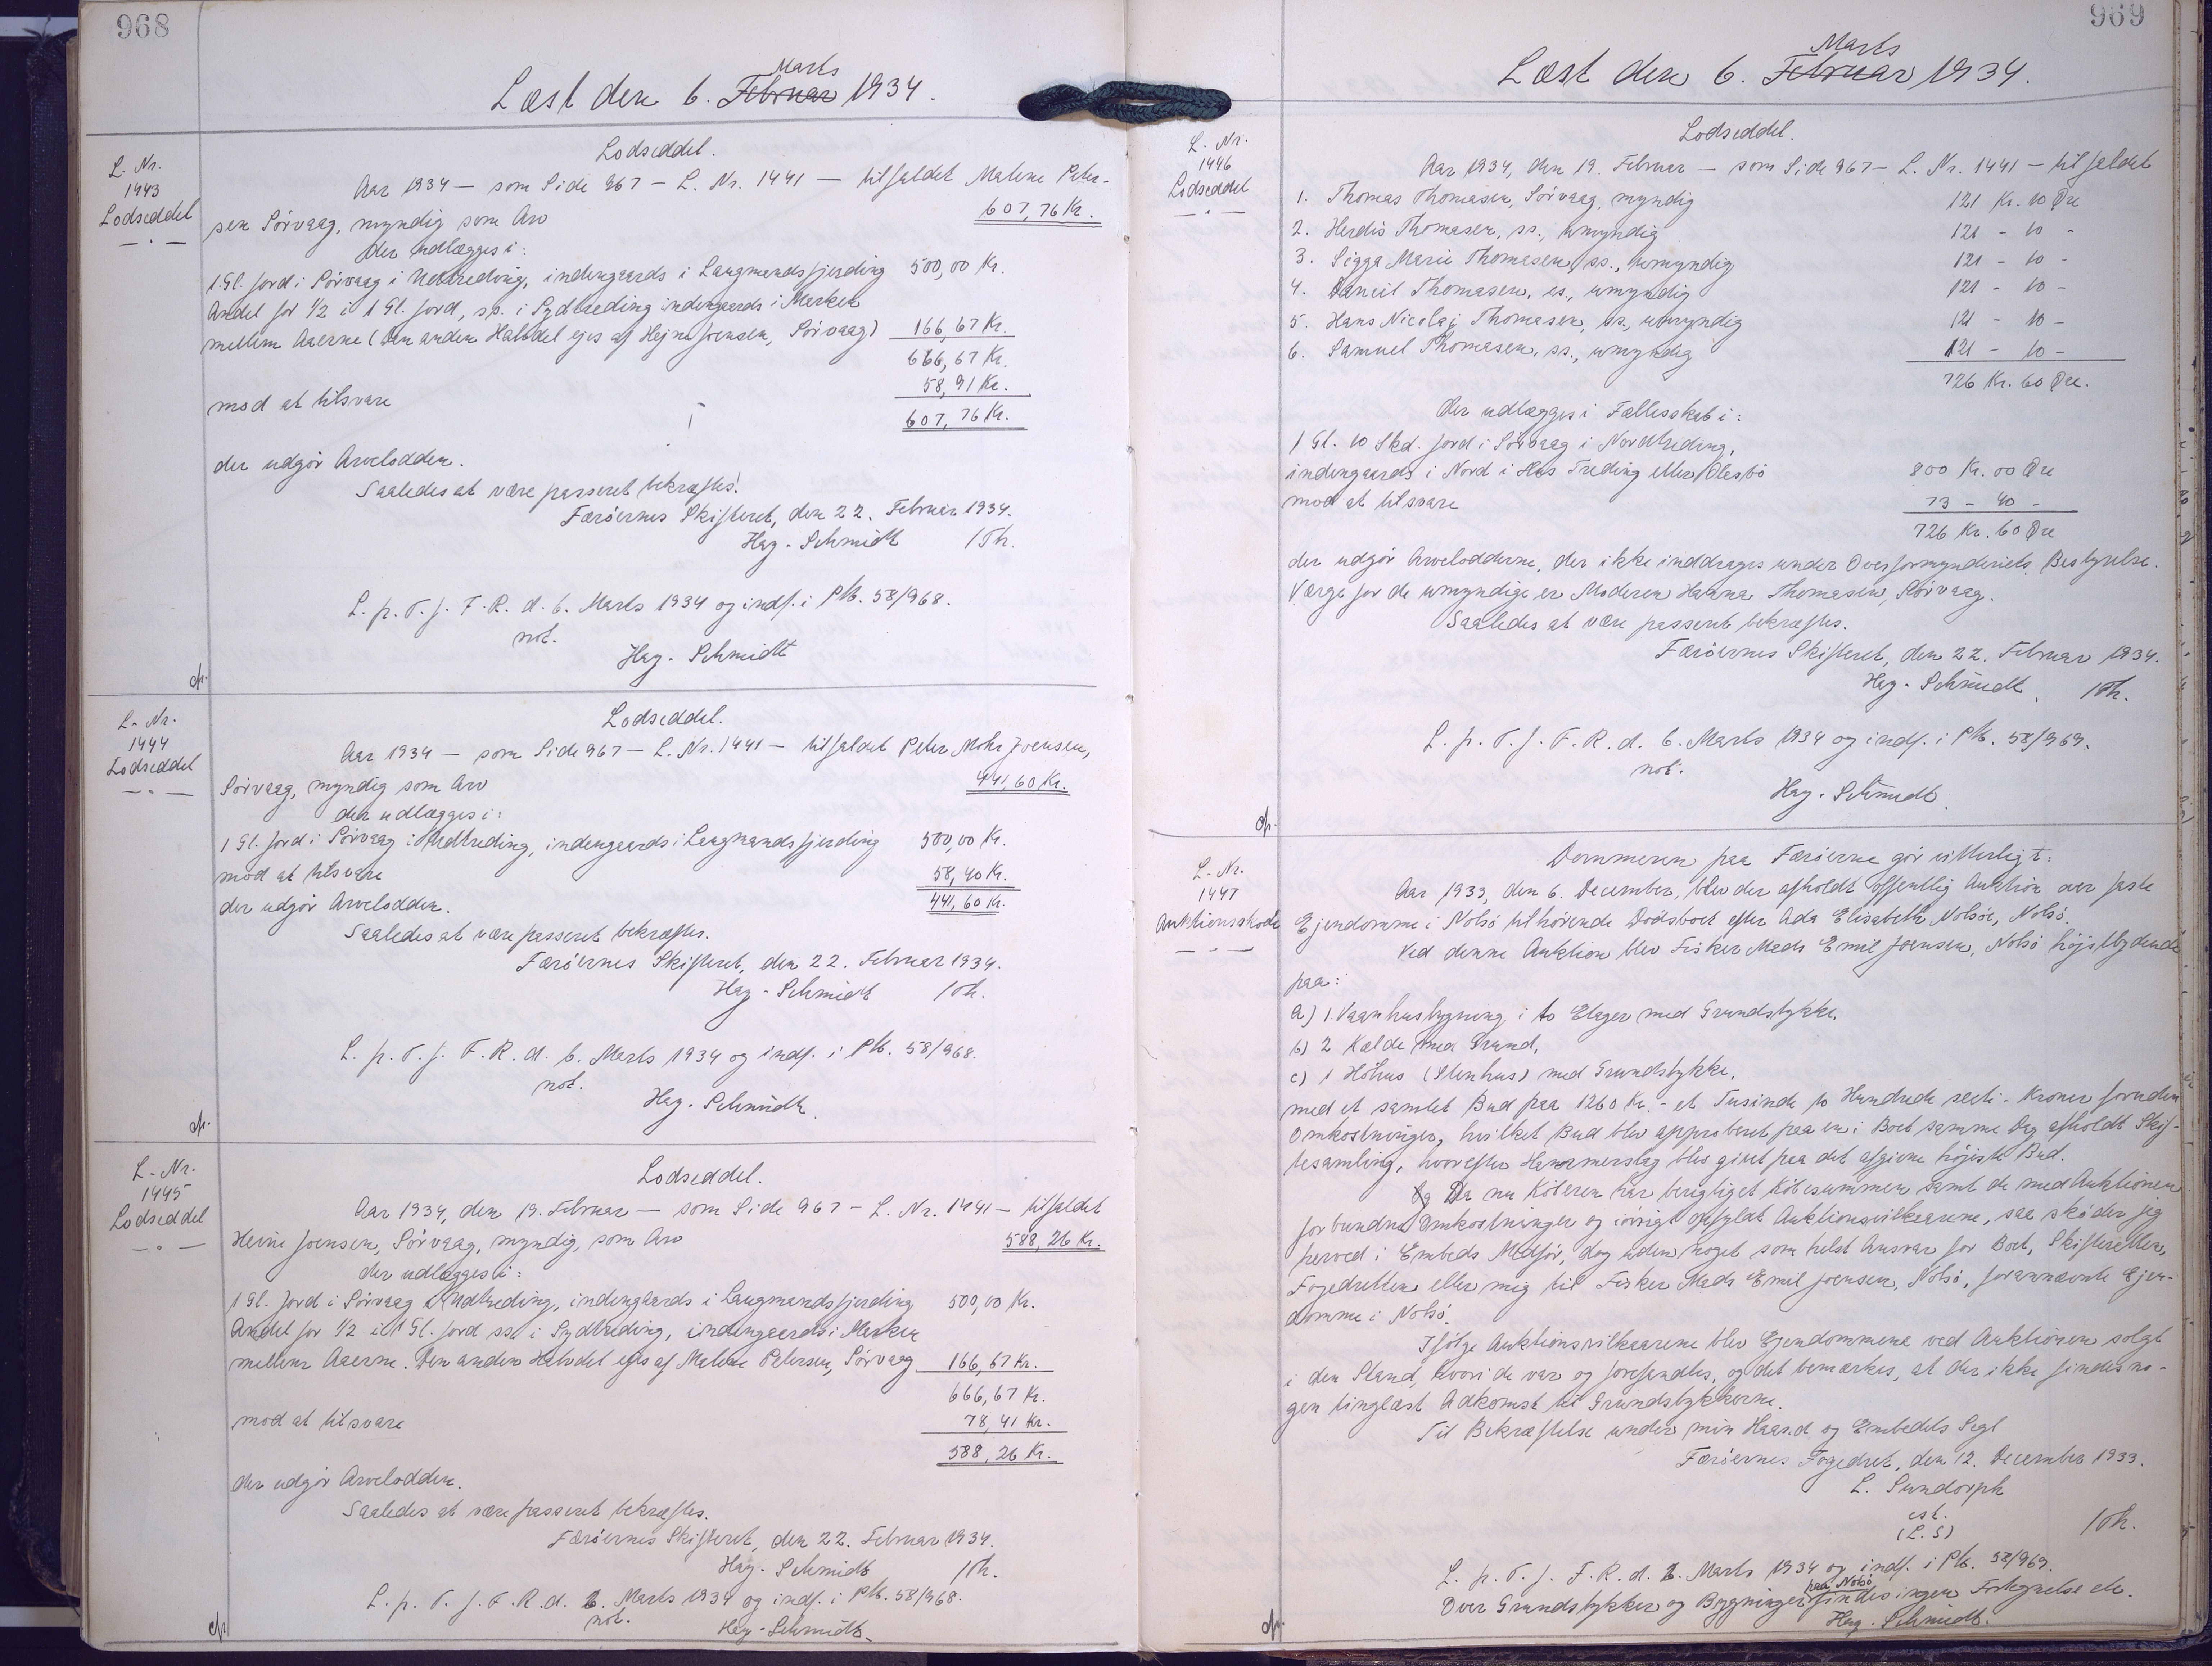 968
Læst den 6. Februar Marts 1934.
L. Nr.
1443
Lodseddel
Lodseddel.
Aar 1934 — som Side 967 — L. Nr. 1441 — tilfaldet Malene Peter-
sen Sörvaag, myndig som Arv 607,76 Kr.
der udlægges i:
1 Gl. Jord i Sörvaag i Udtreding, indengaards i Laugmandsfjerding 500,00 Kr.
Andel for 1/2 i 1 Gl. Jord, ss. i Sydtreding indengaards i Marken
mellem Aaerne (Den anden Halvdel ejes af Hejne Joensen, Sörvaag) 166,67 Kr.
666,67 Kr.
mod at tilsvare 58,91 Kr.
607,76 Kr.
der udgör Arvelodden.
Saaledes at være passeret bekræftes.
Færöernes Skifteret, den 22. Februar 1934.
Hag. Schmidt / Th.
L. p. T. f. F. R. d. 6. Marts 1934 og indf. i Ptb. 58/968.
not.
Hag. Schmidt
cfr.
L. Nr.
1444
Lodseddel
Lodseddel.
Aar 1934 — som Side 967 — L. Nr. 1441 — tilfaldet Peter Mohr Joensen,
Sörvaag, myndig som Arv 441,60 Kr.
der udlægges i:
1 Gl. Jord i Sörvaag i Udtreding, indengaards i Laugmandsfjerding 500,00 Kr.
mod at tilsvare 58,40 Kr.
der udgör Arvelodden. 441,60 Kr.
Saaledes at være passeret bekræftes.
Færöernes Skifteret, den 22. Februar 1934.
Hag. Schmidt / Th.
L. p. T. f. F. R. d. 6. Marts 1934 og indf. i Ptb. 58/968.
not.
Hag. Schmidt.
cfr.
L. Nr.
1445
Lodseddel
Lodseddel.
Aar 1934, den 19. Februar — som Side 967 — L. Nr. 1441 — tilfaldet
Heine Joensen, Sörvaag, myndig, som Arv 588,26 Kr.
der udlægges i:
1 Gl. Jord i Sörvaag i Udtreding, indengaards i Laugmandsfjerding 500,00 Kr.
Andel for 1/2 i 1 Gl. Jord ss. i Sydtreding, indengaards i Marken
mellem Aaerne. Den anden Halvdel ejes af Malene Petersen, Sörvaag 166,67 Kr.
666,67 Kr.
mod at tilsvare 78,41 Kr.
588,26 Kr.
der udgör Arvelodden.
Saaledes at være passeret bekræftes.
Færöernes Skifteret, den 22. Februar 1934.
Hag. Schmidt / Th.
L. p. T. f. F. R. d. 6. Marts 1934 og indf. i Ptb. 58/968.
not. Hag. Schmidt.
cfr.
969
Læst den 6. Februar Marts 1934.
L. Nr.
1446
Lodseddel
Lodseddel.
Aar 1934, den 19. Februar — som Side 967 — L. Nr. 1441 — tilfaldet
1. Thomas Thomasen, Sörvaag, myndig 121 Kr. 10 Øre
2. Herdis Thomasen, ss., umyndig 121 - 10 -
3. Sigga Marie Thomasen, ss., umyndig 121 - 10 -
4. Daniil Thomasen, ss., umyndig 121 - 10 -
5. Hans Nicolaj Thomasen, ss., umyndig 121 - 10 -
6. Samuel Thomasen, ss., umyndig 121 - 10 -
726 Kr. 60 Øre.
der udlægges i Fællesskab i:
1 Gl. 10 Skd. Jord i Sörvaag i Nordtreding,
indengaards i Nord i Hus Treding eller Olesbö 800 Kr. 00 Øre
mod at tilsvare 73 - 40 -
726 Kr. 60 Øre
der udgör Arvelodderne, der ikke inddrages under Overformynderiets Bestyrelse.
Værge for de umyndige er Moderen Hanna Thomasen, Sörvaag.
Saaledes at være passeret bekræftes.
Færöernes Skifteret, den 22. Februar 1934.
Hag. Schmidt. / Th.
L. p. T. f. F. R. d. 6. Marts 1934 og indf. i Ptb. 58/969.
not.
Hag. Schmidt.
cfr.
L. Nr.
1447
Auktionsskøde
Dommeren paa Færöerne gör vitterligt:
Aar 1933, den 6. December, blev der afholdt offentlig Auktion over faste
Ejendomme i Nolsö tilhörende Dödsboet efter Ada Elisabeth Nolsöe, Nolsö.
Ved denne Auktion blev Fisker Mads Emil Joensen, Nolsö höjstbydende
paa:
a) 1 Vaanhusbygning i to Etager med Grundstykke.
b) 2 Kælde med Grund,
c) 1 Höhus (Stenhus) med Grundstykke.
med et samlet Bud paa 1260 Kr. - et Tusinde to Hundrede seksti - Kroner foruden
Omkostninger, hvilket Bud blev approberet paa en i Boet samme Dag afholdt Skif-
tesamling, hvorefter Hammerslag blev givet paa det afgivne höjeste Bud.
Da nu Köberen har berigtiget Köbesummen samt de med Auktionen
forbundne Omkostninger og iövrigt opfyldt Auktionsvilkaarene, saa sköder jeg
herved i Embeds Medför, dog uden noget som helst Ansvar for Boet, Skifteretten,
Fogedretten eller mig til Fisker Mads Emil Joensen, Nolsö, forannævnte Ejen-
domme i Nolsö.
Ifölge Auktionsvilkaarene blev Ejendommene ved Auktionen solgt
i den Stand, hvori de var og forefandtes, og det bemærkes, at der ikke findes no-
gen tinglæst Adkomst til Grundstykkerne.
Til Bekræftelse under min Haand og Embedets Segl
Færöernes Fogedret, den 12. December 1933.
L. Sundorph
cst.
(L.S) / Th.
L. p. T. f. F. R. d. 6. Marts 1934 og indf. i Ptb. 58/969.
Over Grundstykker og Bygninger paa Nolsö findes ingen Fortegnelse etc.
Hag. Schmidt.
cfr.